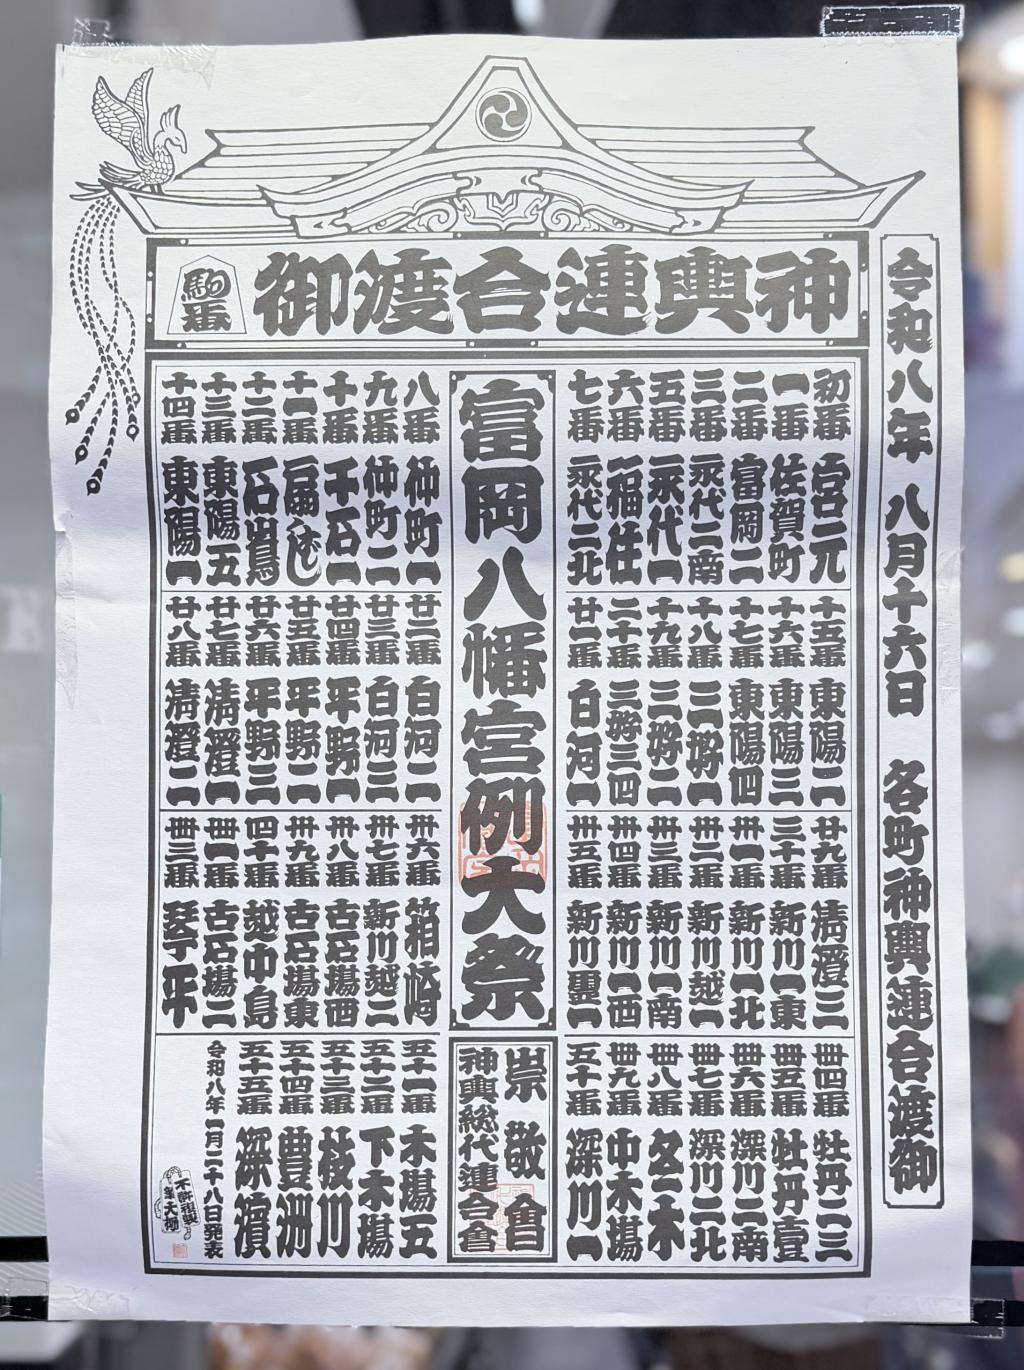 神輿連合渡御
駒番
令和八年　八月十六日　各町神輿連合渡御
初番　宮元
一番　佐賀町
二番　富岡二
三番　永代二南
五番　永代一
六番　福住
七番　永代二北
十五番　東陽二
十六番　東陽三
十七番　東陽四
十八番　三好一
十九番　三好二
二十番　三好三四
廿一番　白河一
廿九番　清澄三
三十番　新川一東
卅一番　新川一北
卅二番　新川越一
卅三番　新川一南
卅四番　新川一西
卅五番　新川霊一
卌四番　牡丹二三
卌五番　牡丹壹
卌六番　深川二南
卌七番　深川二北
卌八番　冬木
卌九番　中木場
五十番　深川一
富岡八幡宮例大祭
崇敬會
神輿総代連合會
八番　仲町一
九番　仲町二
十番　千石一
十一番　扇ばし
十二番　石島
十三番　東陽五
十四番　東陽一
廿二番　白河二
廿三番　白河三
廿四番　平野一
廿五番　平野二
廿六番　平野三
廿七番　清澄一
廿八番　清澄二
卅六番　箱崎
卅七番　新川越二
卅八番　古石場西
卅九番　古石場東
四十番　越中島
卌一番　古石場二
卌三番　琴平
五十一番　木場五
五十二番　下木場
五十三番　枝川
五十四番　豊洲
五十五番　深濱
令和八年一月二十八日発表
不許複製